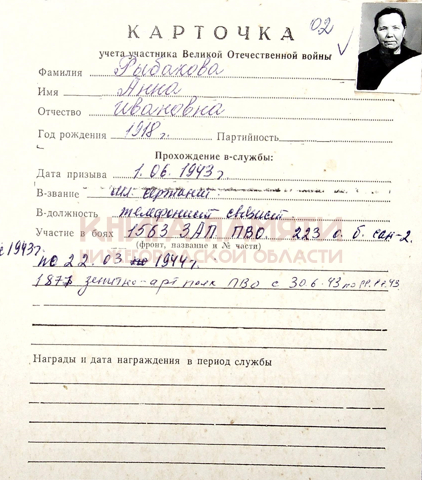 02
КАРТОЧКА
учета участника Великой Отечественной войны
Фамилия Рыбакова
Имя Анна
Отчество Ивановна
Год рождения 1918 г. Партийность
Прохождение в-службы:
Дата призыва 1.06.1943 г.
В-звание мл. сержант
В-должность телефонист связист
Участие в боях 1563 ЗАП ПВО. 223 о. б.
(фронт, название и № части)
КНИГА ПАМЯТИ
с 1943 г.
ОБЛАСТИ
по 22.03 1944 г.
зенитно-арт полк ПВО с 30.6.43 по
Награды и дата награждения в период службы